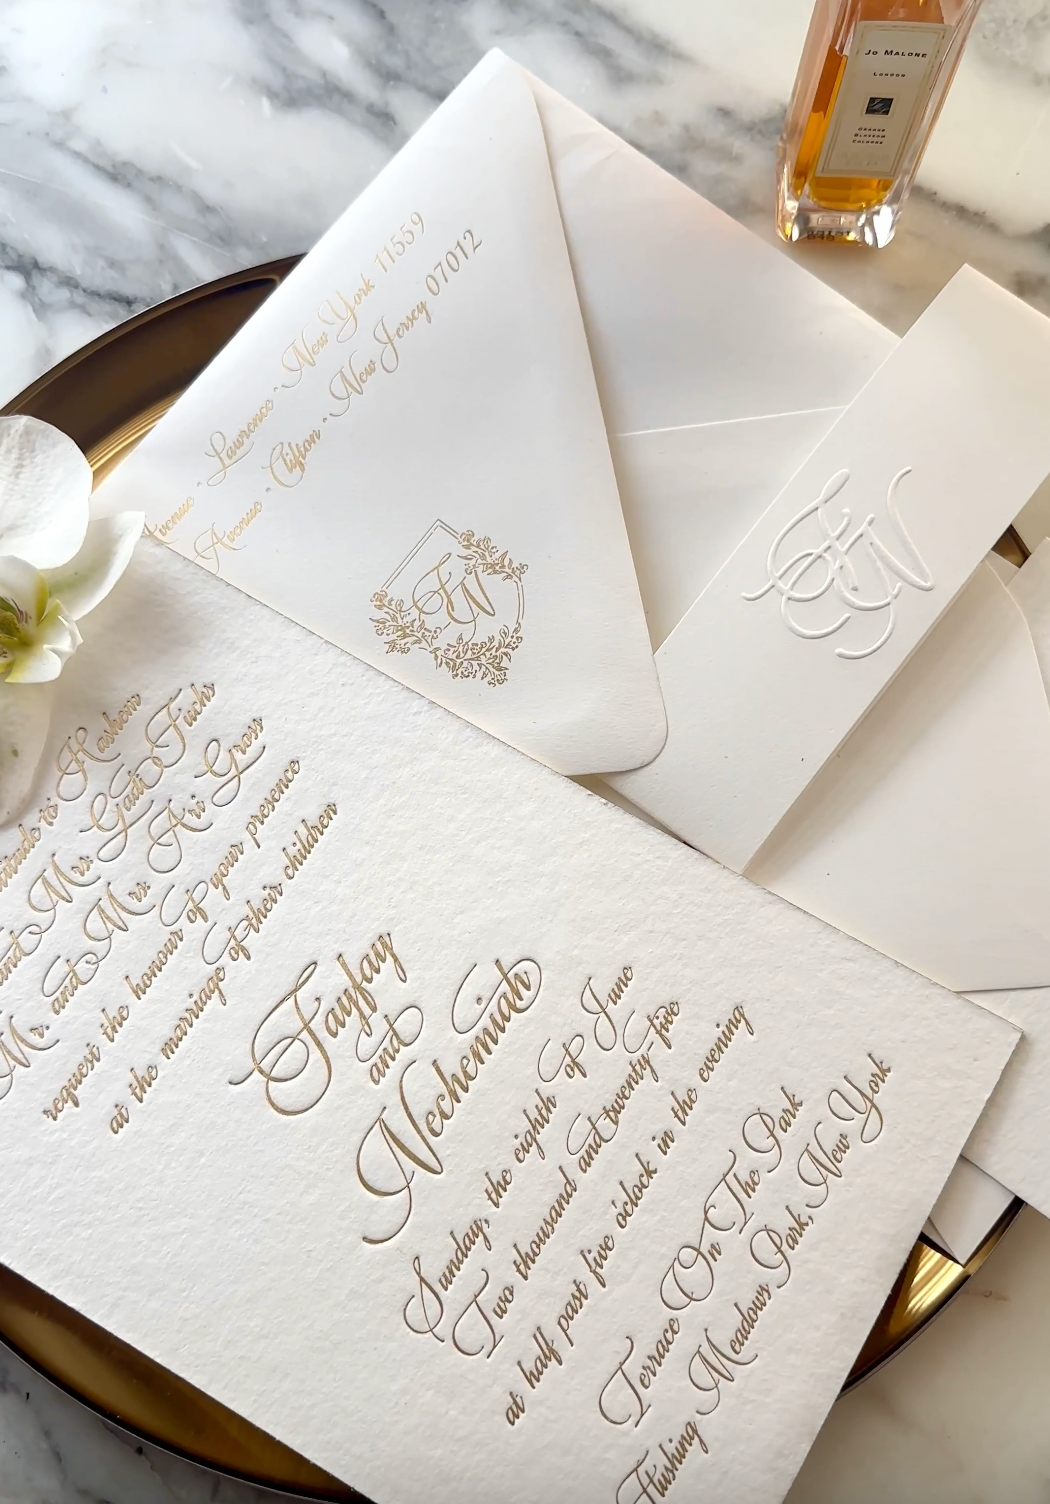 JO MALONE
LONDON
ORANGE
BLOSSOM
COLOGNE
Avenue - Lawrence - New York 11559
Avenue - Clifton - New Jersey 07012
FN
FN
to Hashem
and Mrs. Gadi Fuchs
Mr. and Mrs. Ari Gross
request the honour of your presence
at the marriage of their children
Fayfay
and
Nechemiah
Sunday, the eighth of June
Two thousand and twenty-five
at half past five o'clock in the evening
Terrace On The Park
Flushing Meadows Park, New York